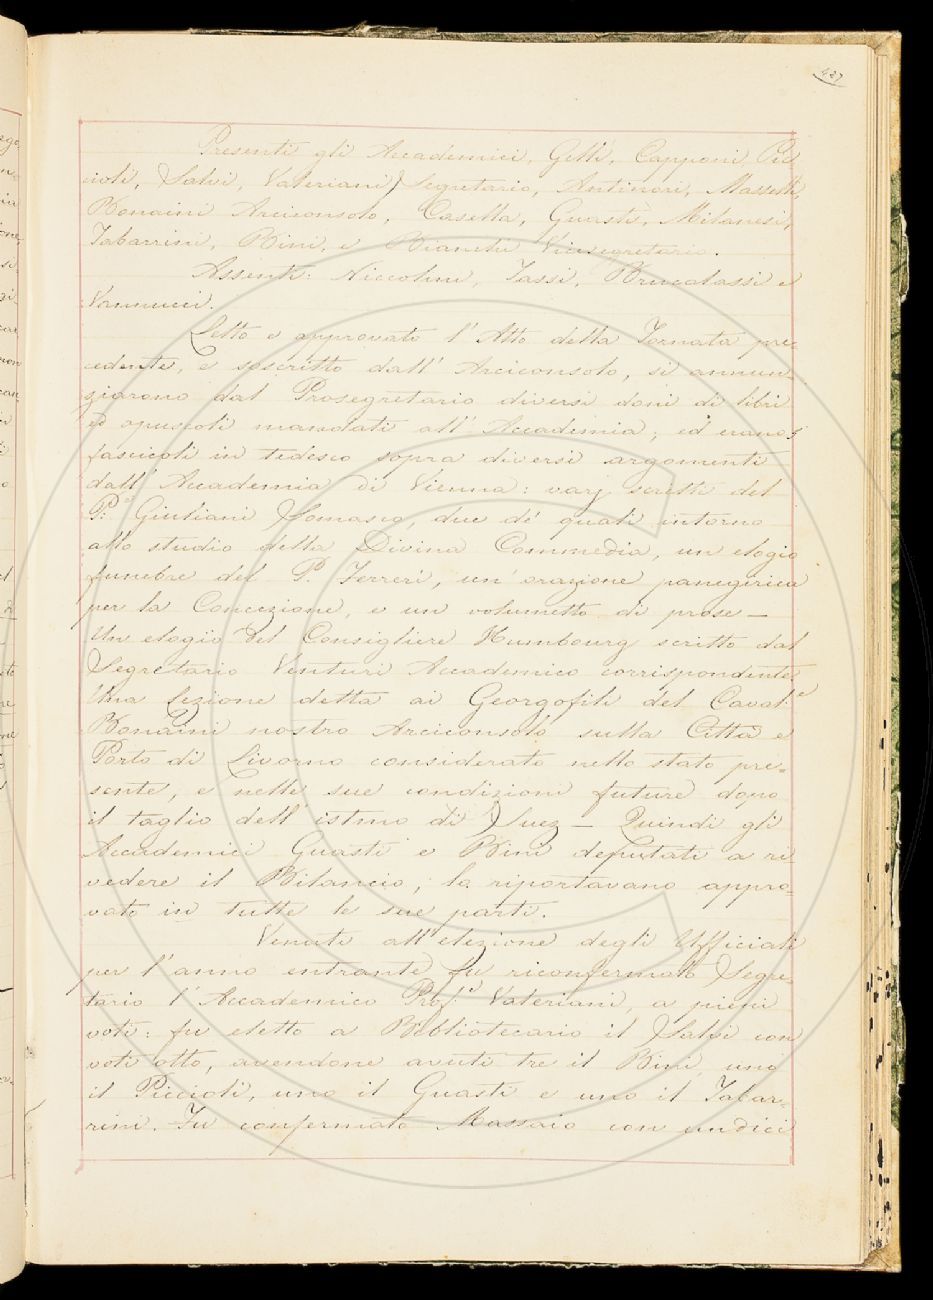 427
Presenti gli Accademici, Gelli, Capponi, Pic
cioli, Salvi, Valeriani Segretario, Antinori, Masselli,
Bonaini Arciconsolo, Casella, Guasti, Milanesi,
Tabarrini, Bini, e Bianchi Vicesegretario.
Assenti: Niccolini, Tassi, Brucalassi e
Vannucci.
Letto e approvato l'Atto della Tornata pre-
cedente, e soscritto dall'Arciconsolo, si annun-
ziarono dal Prosegretario diversi doni di libri
ed opuscoli mandati all'Accademia; ed erano 5
fascicoli in tedesco sopra diversi argomenti
dall'Accademia di Vienna: varj scritti del
P.e Giuliani Somasco, due de' quali intorno
allo studio della Divina Commedia, un elogio
funebre del P. Ferreri, un'orazione panegirica
per la Concezione, e un volumetto di prose —
Un elogio del Consigliere Humbourg scritto dal
Segretario Venturi Accademico corrispondente
Una lezione detta ai Georgofili del Caval.e
Bonaini nostro Arciconsolo sulla Città e
Porto di Livorno considerato nello stato pre-
sente, e nelle sue condizioni future dopo
il taglio dell'istmo di Suez — Quindi gli
Accademici Guasti e Bini deputati a ri
vedere il Bilancio, lo riportavano appro-
vato in tutte le sue parti.
Venuti all'elezione degli Ufficiali
per l'anno entrante fu riconfermato Segre-
tario l'Accademico Prof. Valeriani, a pieni
voti: fu eletto a Bibliotecario il Salvi con
voti otto, avendone avuti tre il Bini, uno
il Piccioli, uno il Guasti e uno il Tabar-
rini. Fu confermato Massaio con undici